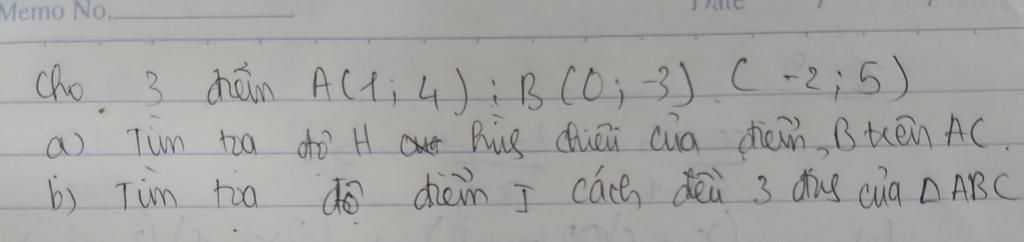 Memo No.
Date
Cho 3 điểm A(1; 4) ; B(0; -3) C(-2; 5)
a) Tìm tọa độ H hình chiếu của điểm B trên AC.
b) Tìm tọa độ điểm I cách đều 3 đỉnh của Δ ABC